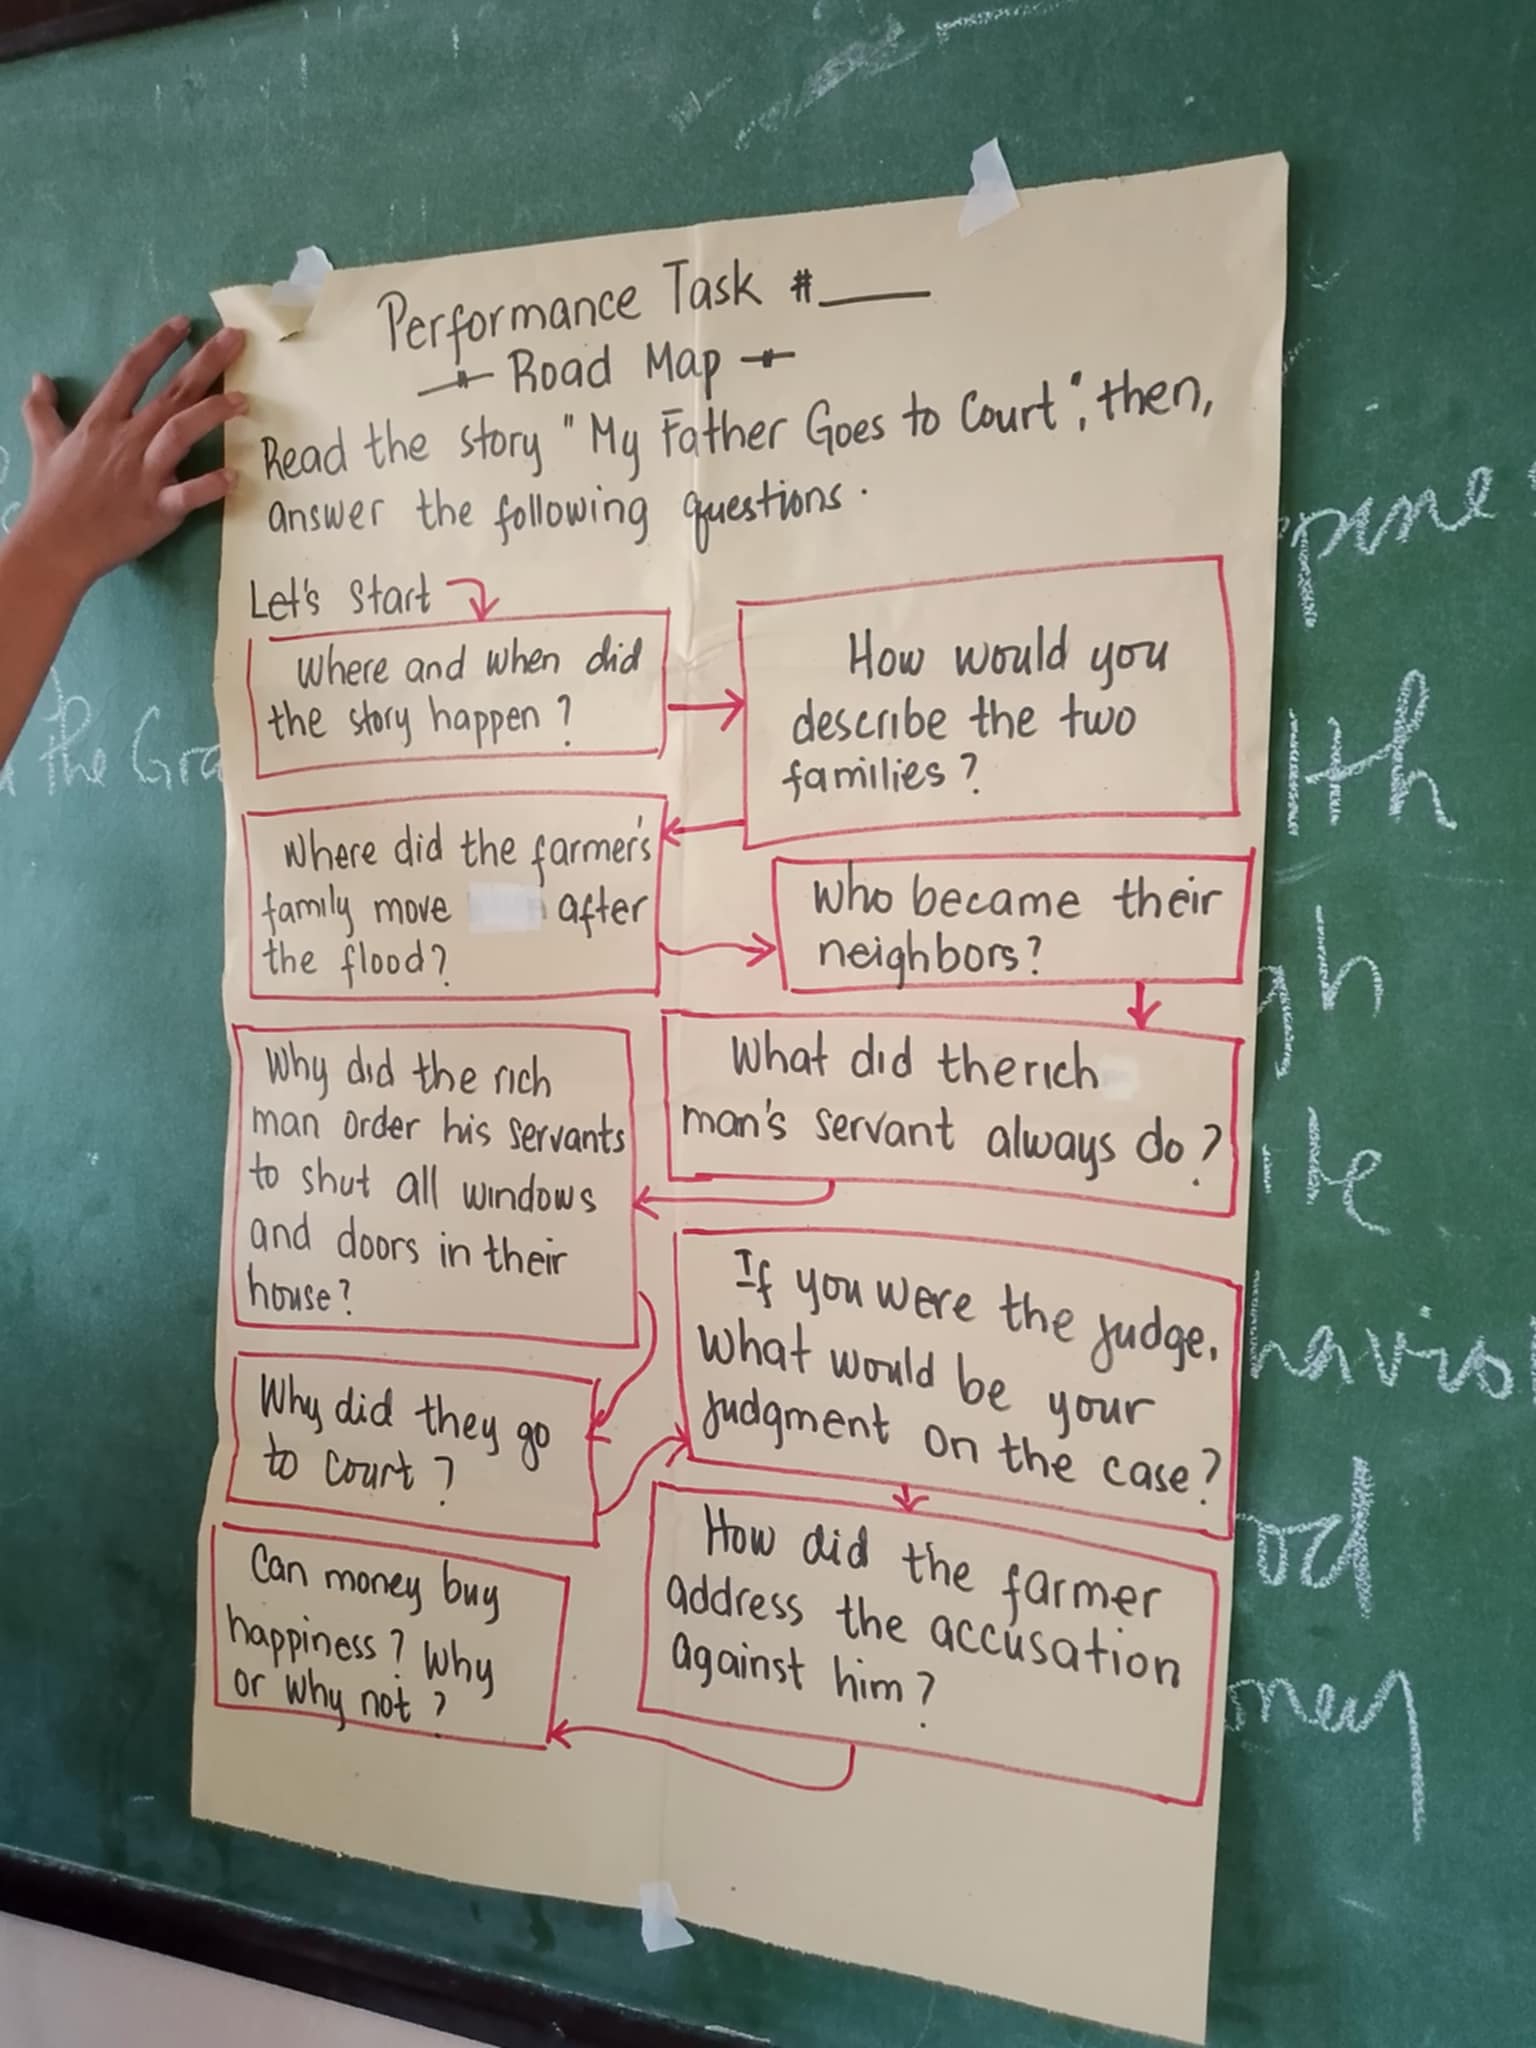 Performance Task #____
Road Map
Read the story "My Father Goes to Court", then,
answer the following questions.
Let's Start
Where and when did
the story happen?
How would you
describe the two
families?
Where did the farmer's
family move after
the flood?
Who became their
neighbors?
What did the rich
man's servant always do?
Why did the rich
man order his servants
to shut all windows
and doors in their
house?
Why did they go
to court?
If you were the judge,
what would be your
judgment on the case?
How did the farmer
address the accusation
against him?
Can money buy
happiness? Why
or why not?
the Gra